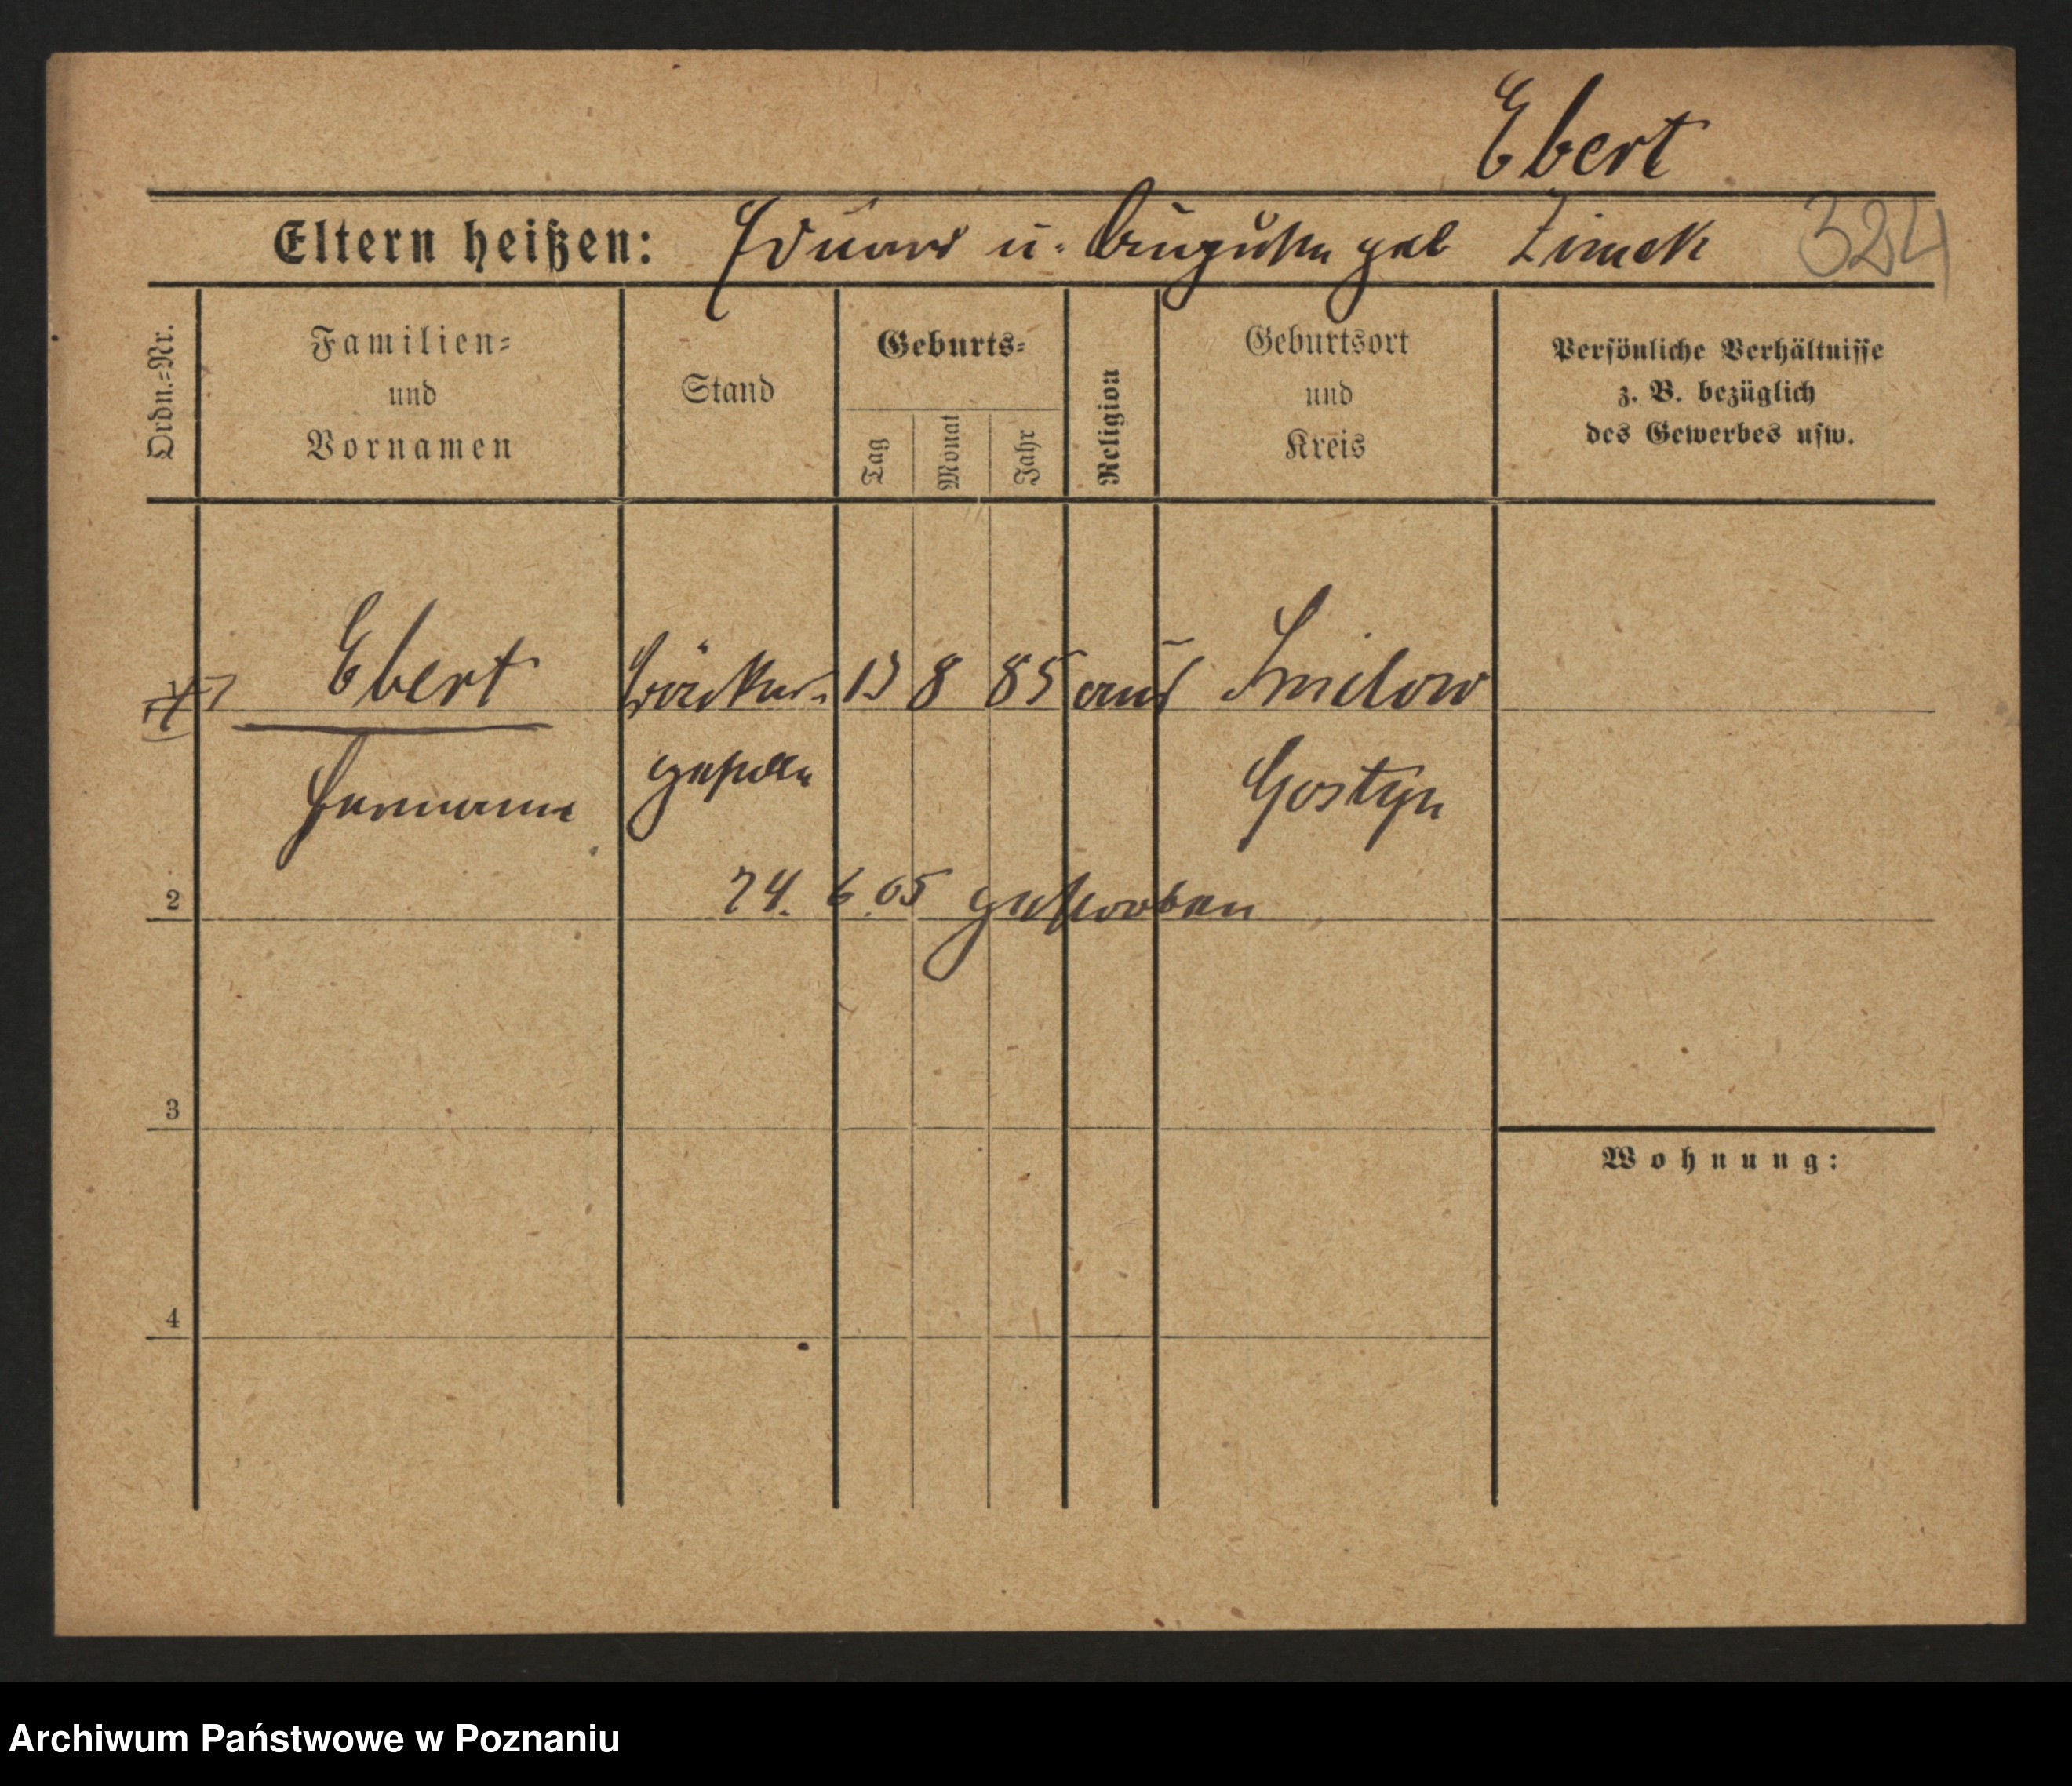 Ebert
Eltern heißen: Eduard u. Auguste geb Zimek 324
Ordn.=Nr.
Familien=
und
Vornamen
Stand
Geburts=
Tag
Monat
Jahr
Religion
Geburtsort
und
Kreis
Persönliche Verhältnisse
z. B. bezüglich
des Gewerbes usw.
Ebert Bäcker= 13 8 85 Smilowo
Hermann geselle Gostyn
2 24. 6. 05 gestorben
3
Wohnung:
4
Archiwum Państwowe w Poznaniu